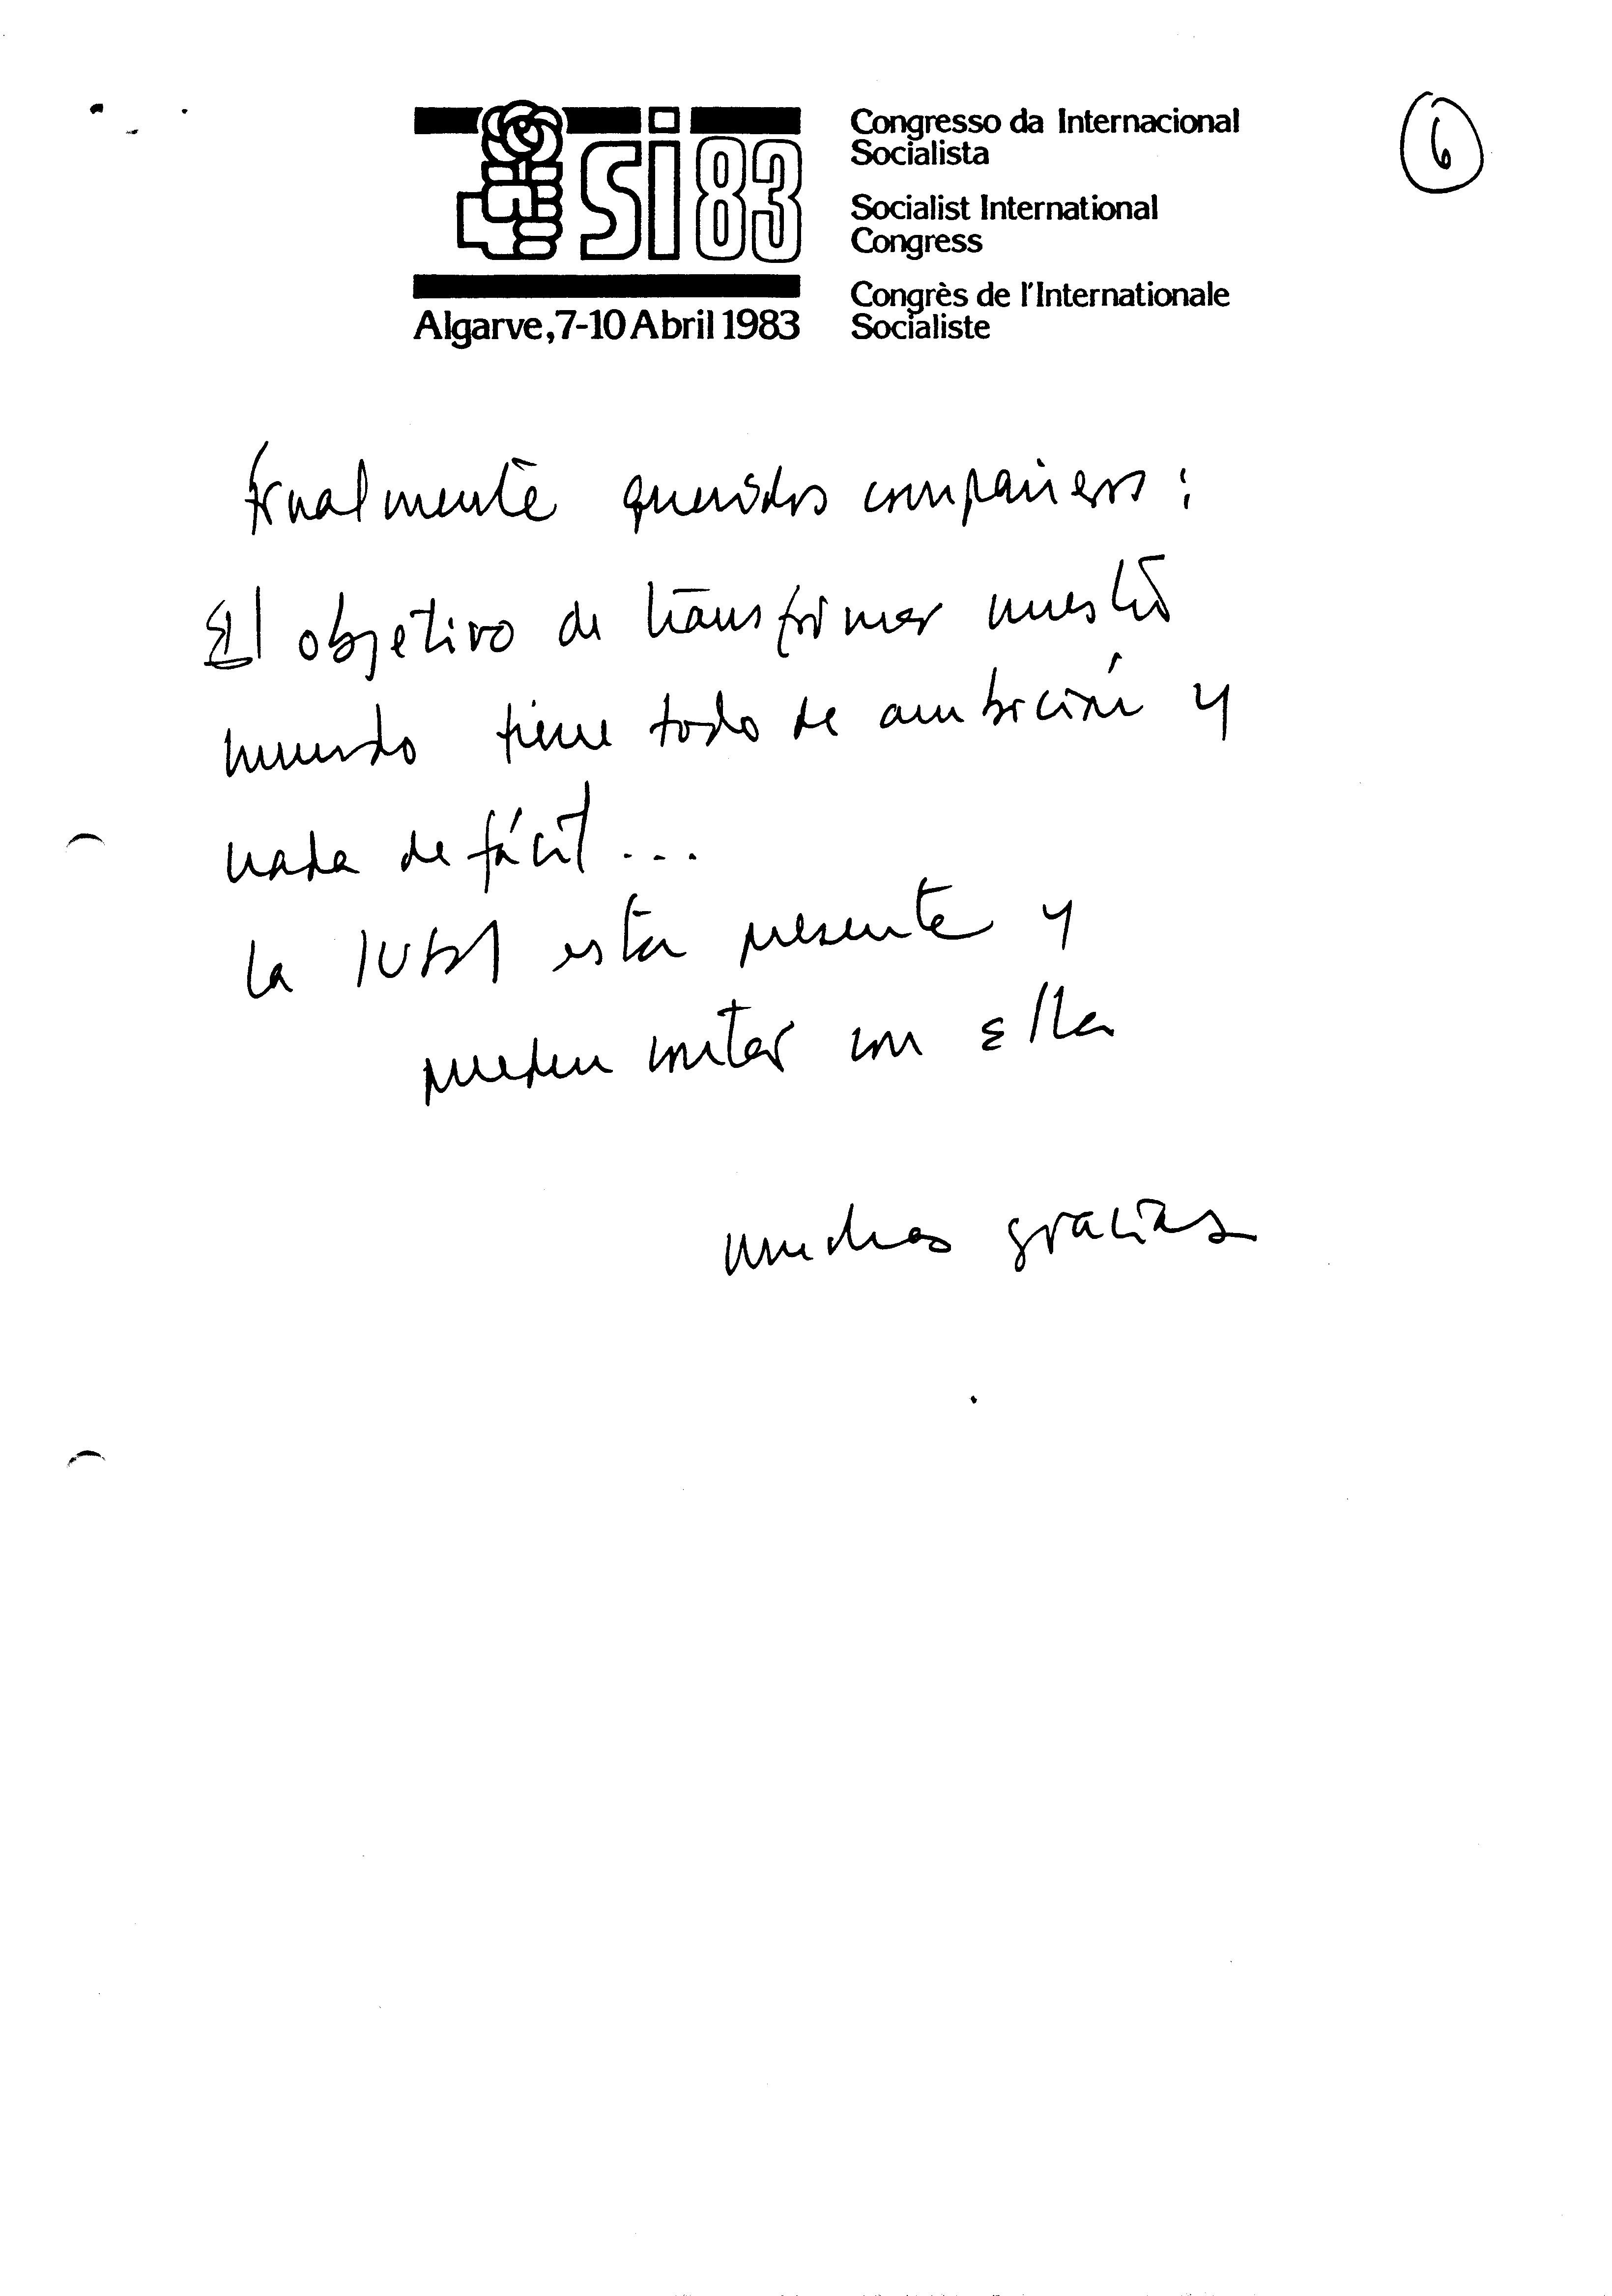 Congresso da Internacional
Socialista
Socialist International
Congress
Congrès de l'Internationale
Socialiste
6
si 83
Algarve, 7-10 Abril 1983
finalmente queridos compañeros:
El objetivo de transformar nuestro
mundo tiene todo de ambición y
nada de fácil...
la IUSY esta presente y
pueden contar con ella
muchas gracias